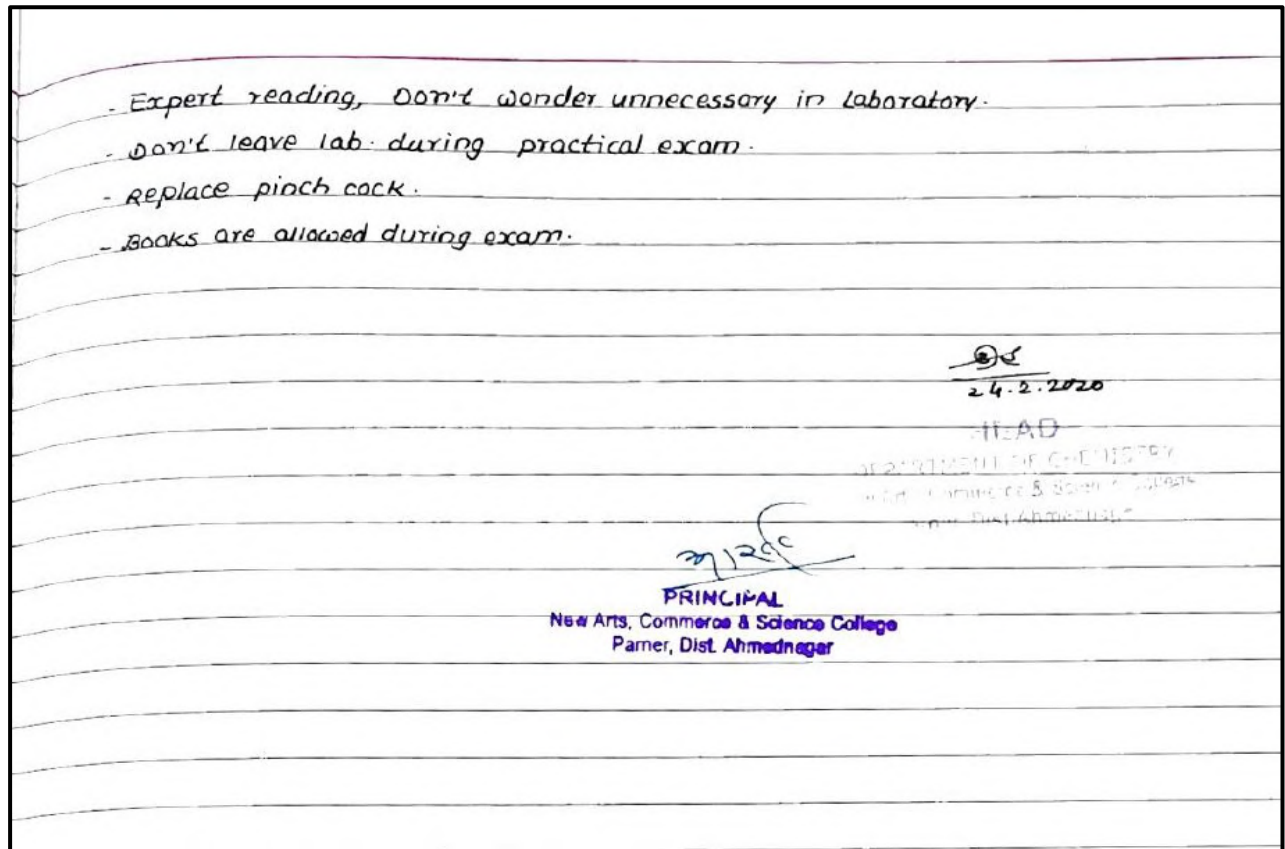 - Expert reading, Don't wonder unnecessary in Laboratory.
- Don't leave lab. during practical exam.
- Replace pinch cock.
- Books are allowed during exam.
24.2.2020
HEAD
DEPARTMENT OF CHEMISTRY
Commerce & Science College
Dist. Ahmednagar
PRINCIPAL
New Arts, Commerce & Science College
Parner, Dist. Ahmednagar